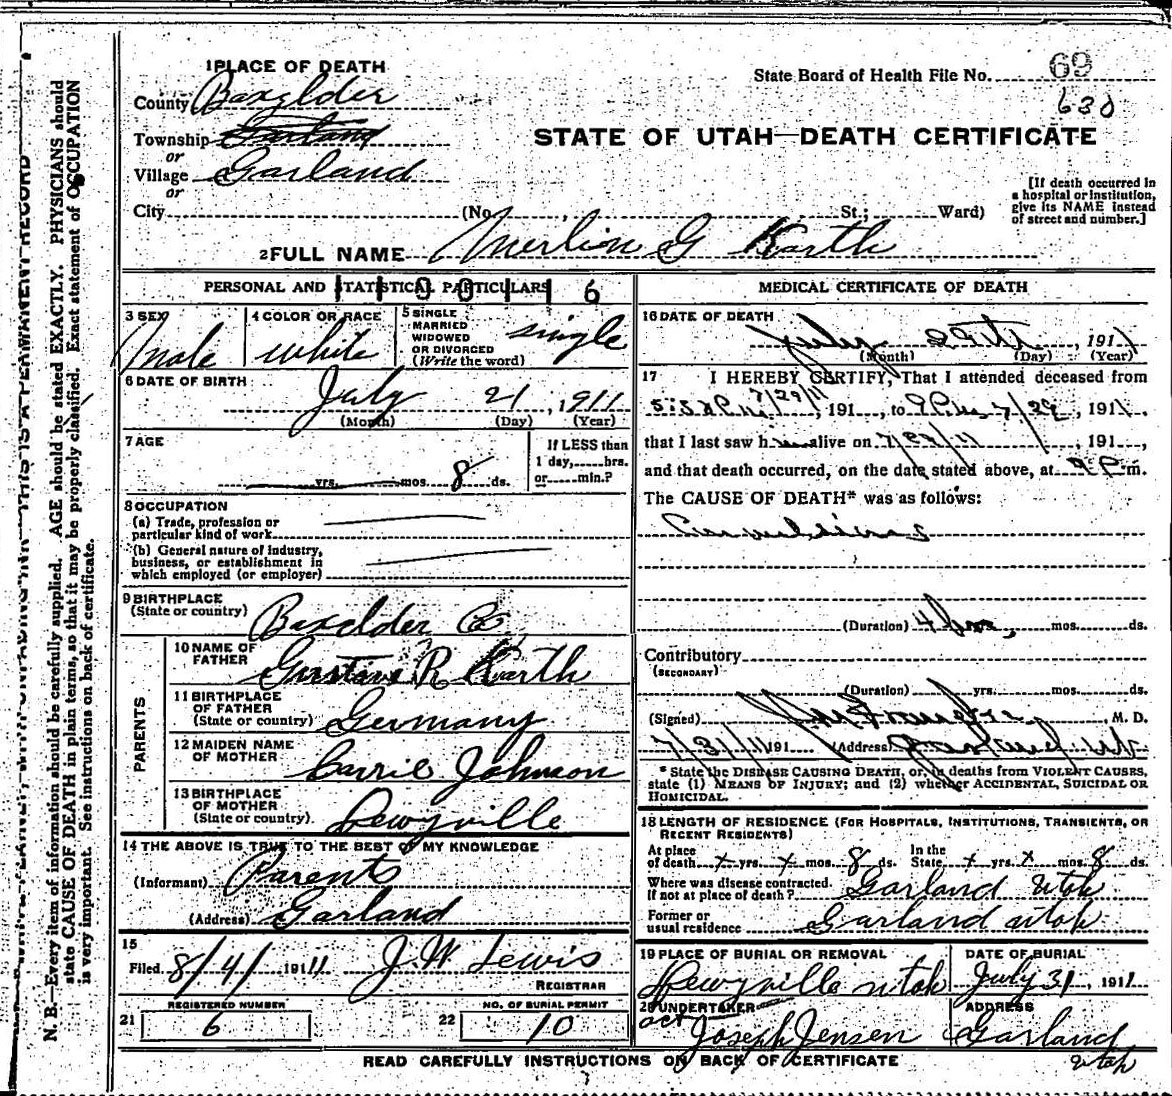 1 PLACE OF DEATH
State Board of Health File No. 69
630
County Boxelder
STATE OF UTAH—DEATH CERTIFICATE
Township Garland
or
Village Garland
or
City (No. , St.; Ward)
[If death occurred in
a hospital or institution,
give its NAME instead
of street and number.]
2 FULL NAME Merlion G Karth
PERSONAL AND STATISTICAL PARTICULARS
3 SEX
Male
4 COLOR OR RACE
white
5 SINGLE
MARRIED
WIDOWED
OR DIVORCED
(Write the word)
single
6 DATE OF BIRTH
July 21, 1911
(Month) (Day) (Year)
7 AGE
yrs. mos. 8 ds.
If LESS than
1 day, hrs.
or min.?
8 OCCUPATION
(a) Trade, profession or
particular kind of work
(b) General nature of industry,
business, or establishment in
which employed (or employer)
9 BIRTHPLACE
(State or country) Boxelder Co
PARENTS
10 NAME OF
FATHER Gustave R Karth
11 BIRTHPLACE
OF FATHER
(State or country) Germany
12 MAIDEN NAME
OF MOTHER Carrie Johnson
13 BIRTHPLACE
OF MOTHER
(State or country) Dewyville
14 THE ABOVE IS TRUE TO THE BEST OF MY KNOWLEDGE
(Informant) Parents
(Address) Garland
15
Filed 8/4/ 1911 J. W Lewis
REGISTRAR
REGISTERED NUMBER
21 6
NO. OF BURIAL PERMIT
22 10
MEDICAL CERTIFICATE OF DEATH
16 DATE OF DEATH
July 29th, 1911
(Month) (Day) (Year)
17 I HEREBY CERTIFY, That I attended deceased from
7/29/11, 191 , to 7/29, 1911.
that I last saw him alive on 7/29/11, 191 ,
and that death occurred, on the date stated above, at 9 P.m.
The CAUSE OF DEATH* was as follows:
Convulsions
(Duration) 4 hrs. mos. ds.
Contributory
(SECONDARY)
(Duration) yrs. mos. ds.
(Signed) , M. D.
7/31/11 191 (Address) Garland Ut
* State the DISEASE CAUSING DEATH, or, in deaths from VIOLENT CAUSES,
state (1) MEANS OF INJURY; and (2) whether ACCIDENTAL, SUICIDAL OR
HOMICIDAL.
18 LENGTH OF RESIDENCE (FOR HOSPITALS, INSTITUTIONS, TRANSIENTS, OR
RECENT RESIDENTS)
At place
of death x yrs. x mos. 8 ds. In the
State x yrs. x mos. 8 ds.
Where was disease contracted.
If not at place of death? Garland Utah
Former or
usual residence Garland utah
19 PLACE OF BURIAL OR REMOVAL
Dewyville utah
DATE OF BURIAL
July 31, 1911
20 UNDERTAKER
act Joseph Jensen
ADDRESS
Garland
utah
READ CAREFULLY INSTRUCTIONS ON BACK OF CERTIFICATE
N. B.—Every item of information should be carefully supplied. AGE should be stated EXACTLY. PHYSICIANS should
state CAUSE OF DEATH in plain terms, so that it may be properly classified. Exact statement of OCCUPATION
is very important. See instructions on back of certificate.